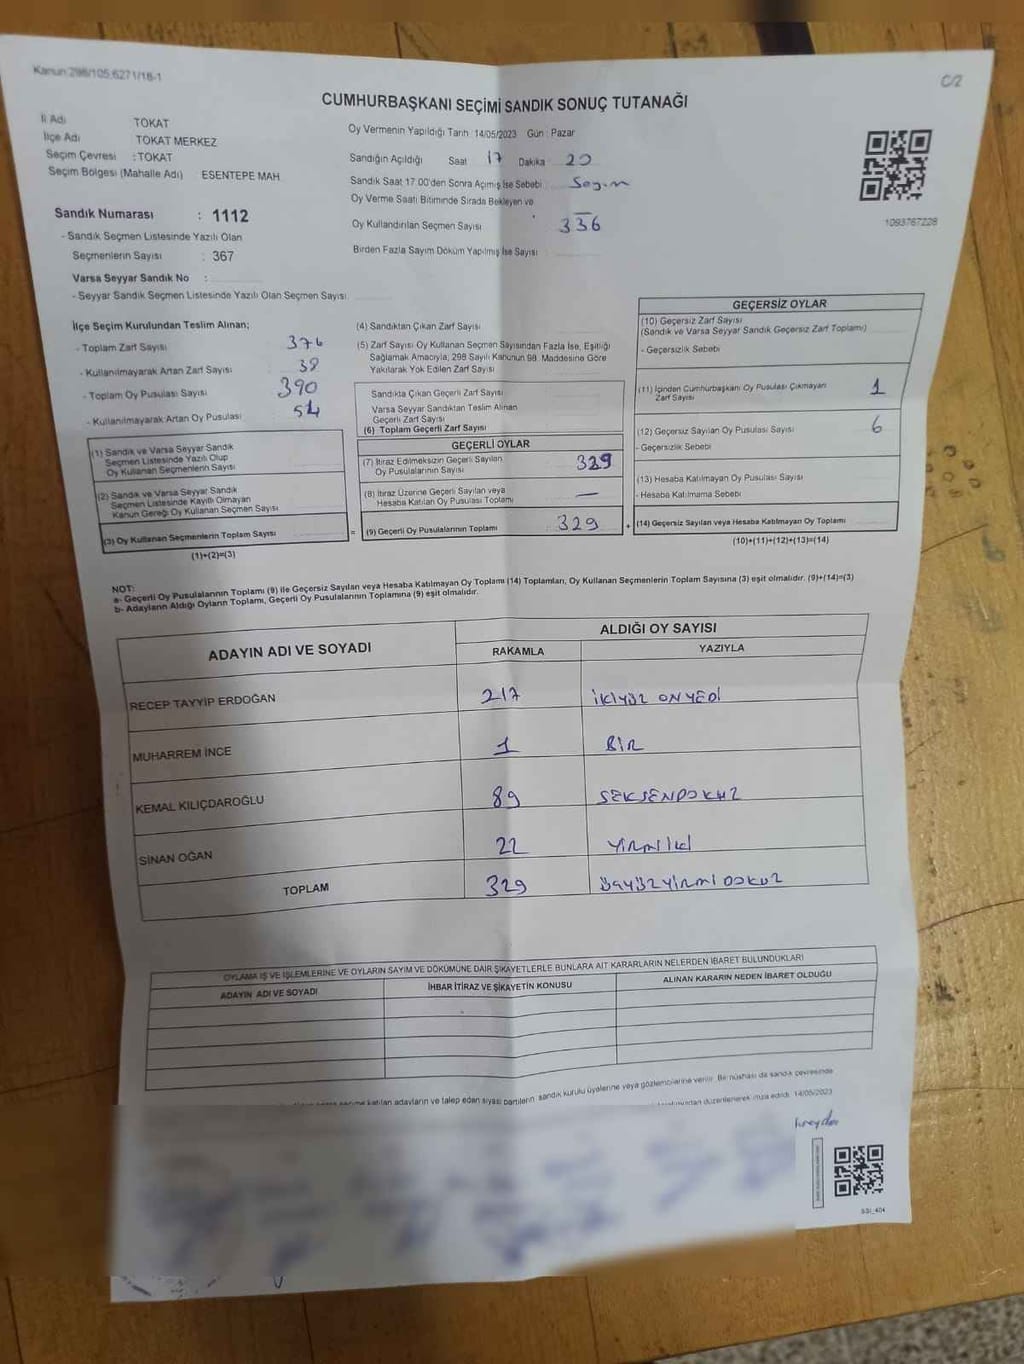 Kanun:298/105,6271/18-1
C/2
CUMHURBAŞKANI SEÇİMİ SANDIK SONUÇ TUTANAĞI
İl Adı TOKAT
İlçe Adı TOKAT MERKEZ
Seçim Çevresi :TOKAT
Seçim Bölgesi (Mahalle Adı) ESENTEPE MAH.
Sandık Numarası : 1112
- Sandık Seçmen Listesinde Yazılı Olan
Seçmenlerin Sayısı : 367
Varsa Seyyar Sandık No :
- Seyyar Sandık Seçmen Listesinde Yazılı Olan Seçmen Sayısı
Oy Vermenin Yapıldığı Tarih :14/05/2023 Gün : Pazar
Sandığın Açıldığı Saat 17 Dakika 20
Sandık Saat 17.00'den Sonra Açımış İse Sebebi Sayım
Oy Verme Saati Bitiminde Sırada Bekleyen ve
Oy Kullandırılan Seçmen Sayısı 336
Birden Fazla Sayım Döküm Yapılmış İse Sayısı
1093767228
İlçe Seçim Kurulundan Teslim Alınan;
- Toplam Zarf Sayısı 376
- Kullanılmayarak Artan Zarf Sayısı 38
- Toplam Oy Pusulası Sayısı 390
- Kullanılmayarak Artan Oy Pusulası 54
(1) Sandık ve Varsa Seyyar Sandık
Seçmen Listesinde Yazılı Olup
Oy Kullanan Seçmenlerin Sayısı
(2) Sandık ve Varsa Seyyar Sandık
Seçmen Listesinde Kayıtlı Olmayan
Kanun Gereği Oy Kullanan Seçmen Sayısı
(3) Oy Kullanan Seçmenlerin Toplam Sayısı
(1)+(2)=(3)
(4) Sandıktan Çıkan Zarf Sayısı
(5) Zarf Sayısı Oy Kullanan Seçmen Sayısından Fazla İse, Eşitliği
Sağlamak Amacıyla, 298 Sayılı Kanunun 98. Maddesine Göre
Yakılarak Yok Edilen Zarf Sayısı
Sandıkta Çıkan Geçerli Zarf Sayısı
Varsa Seyyar Sandıktan Teslim Alınan
Geçerli Zarf Sayısı
(6) Toplam Geçerli Zarf Sayısı
GEÇERLİ OYLAR
(7) İtiraz Edilmeksizin Geçerli Sayılan
Oy Pusulalarının Sayısı 329
(8) İtiraz Üzerine Geçerli Sayılan veya
Hesaba Katılan Oy Pusulası Toplamı —
= (9) Geçerli Oy Pusulalarının Toplamı 329 +
GEÇERSİZ OYLAR
(10) Geçersiz Zarf Sayısı
(Sandık ve Varsa Seyyar Sandık Geçersiz Zarf Toplamı)
- Geçersizlik Sebebi
(11) İçinden Cumhurbaşkanı Oy Pusulası Çıkmayan
Zarf Sayısı 1
(12) Geçersiz Sayılan Oy Pusulası Sayısı 6
- Geçersizlik Sebebi
(13) Hesaba Katılmayan Oy Pusulası Sayısı
- Hesaba Katılmama Sebebi
(14) Geçersiz Sayılan veya Hesaba Katılmayan Oy Toplamı
(10)+(11)+(12)+(13)=(14)
NOT:
a- Geçerli Oy Pusulalarının Toplamı (9) ile Geçersiz Sayılan veya Hesaba Katılmayan Oy Toplamı (14) Toplamları, Oy Kullanan Seçmenlerin Toplam Sayısına (3) eşit olmalıdır. (9)+(14)=(3)
b- Adayların Aldığı Oyların Toplamı, Geçerli Oy Pusulalarının Toplamına (9) eşit olmalıdır.
ADAYIN ADI VE SOYADI
ALDIĞI OY SAYISI
RAKAMLA YAZIYLA
RECEP TAYYİP ERDOĞAN 217 İKİYÜZ ONYEDİ
MUHARREM İNCE 1 BİR
KEMAL KILIÇDAROĞLU 89 SEKSENDOKUZ
SİNAN OĞAN 22 YİRMİİKİ
TOPLAM 329 ÜÇYÜZYİRMİDOKUZ
OYLAMA İŞ VE İŞLEMLERİNE VE OYLARIN SAYIM VE DÖKÜMÜNE DAİR ŞİKAYETLERLE BUNLARA AİT KARARLARIN NELERDEN İBARET BULUNDUKLARI
ADAYIN ADI VE SOYADI İHBAR İTİRAZ VE ŞİKAYETİN KONUSU ALINAN KARARIN NEDEN İBARET OLDUĞU
katılan adayların ve talep eden siyasi partilerin sandık kurulu üyelerine veya gözlemcilerine verilir. Bir nüshası da sandık çevresinde
düzenlenerek imza edildi. 14/05/2023
SSI_404